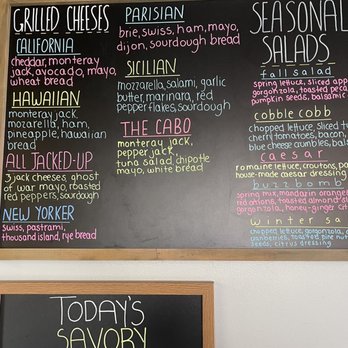 GRILLED CHEESES
CALIFORNIA
cheddar, monterey
jack, avocado, mayo,
wheat bread
HAWAIIAN
monterey jack,
mozarella, ham,
pineapple, hawaiian
bread
ALL JACKED-UP
3 jack cheeses, ghost
of war mayo, roasted
red peppers, sourdough
NEW YORKER
swiss, pastrami,
thousand island, rye bread
PARISIAN
brie, swiss, ham, mayo,
dijon, sourdough bread
SICILIAN
mozzarella, salami, garlic
butter, marinara, red
pepper flakes, sourdough
THE CABO
monterey jack,
pepper jack,
tuna salad, chipotle
mayo, white bread
SEASONAL
SALADS
fall salad
spring lettuce, sliced app
gorgonzola, toasted peca
pumpkin seeds, balsamic
cobble cobb
chopped lettuce, sliced tu
cherry tomatoes, bacon,
blue cheese crumbles, bals
caesar
romaine lettuce, croutons, pa
house-made caesar dressing
buzz bomb
spring mix, mandarin orange
red onions, toasted almond sl
gorgonzola, honey-ginger
winter sa
chopped lettuce, gorgonzola,
cranberries, toasted pine nut
seeds, citrus dressing
TODAY'S
SAVORY